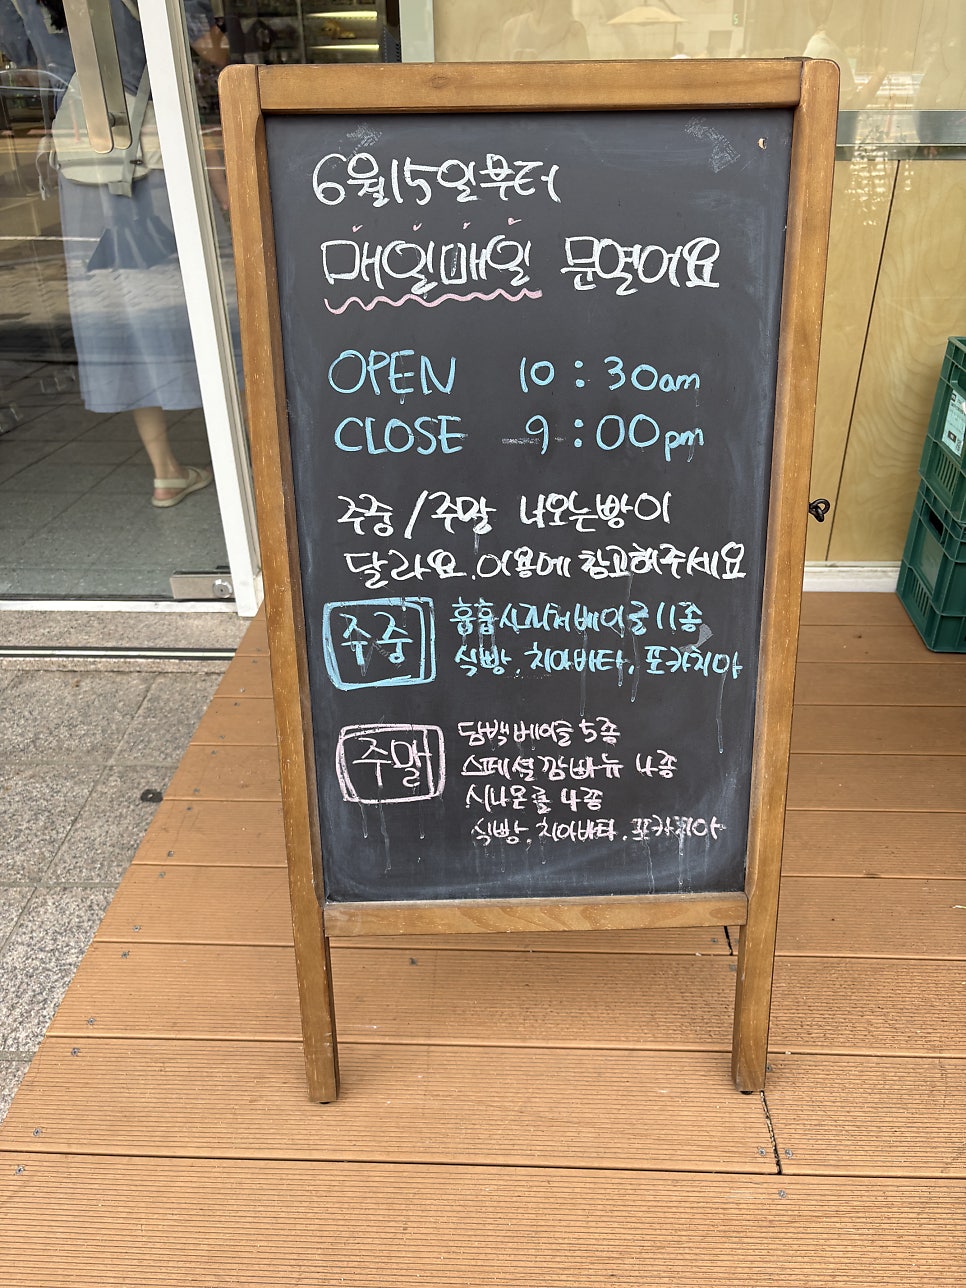 6월15일부터
매일매일 문열어요
OPEN 10:30am
CLOSE 9:00pm
주중/주말 나오는빵이
달라요.이용에 참고해주세요
주중
흠흠시그니처베이글11종
식빵.치아바타.포카치아
주말
담백베이글5종
스페셜깜빠뉴 4종
시나몬롤 4종
식빵.치아바타.포카치아